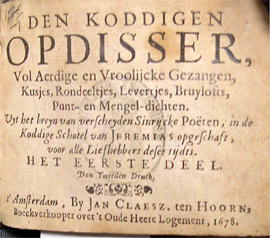 DEN KODDIGEN
OPDISSER,
Vol Aerdige en Vroolijcke Gezangen,
Kusjes, Rondeeltjes, Levertjes, Bruylofts,
Punt- en Mengel-dichten.
Uyt het breyn van verscheyden Sinrijcke Poëten, in de
Koddige Schotel van JEREMIAS opgeschaft,
voor alle Liefhebbers deser tijdts.
HET EERSTE DEEL.
Den Tweeden Druck,
t'Amsterdam, By JAN CLAESZ. ten HOORN,
Boeckverkooper over 't Oude Heere Logement, 1678.